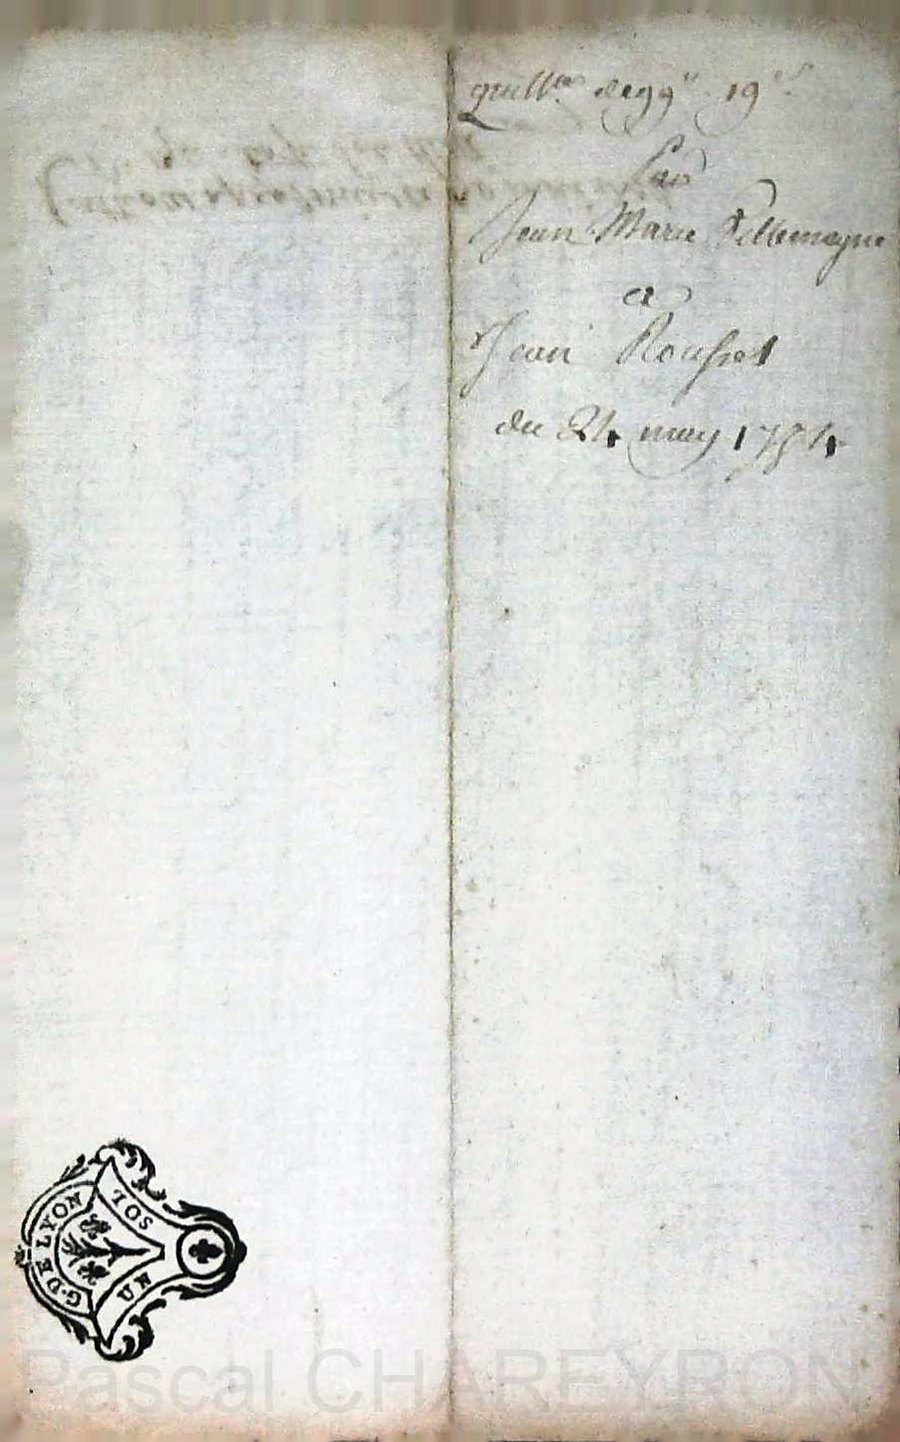 quitt.ce de 99# 19s
par
Jean Marie Pellemagne
a
Jean Rousset
du 24 may 1784
G. DE LYON
UN SOL
Pascal CHAREYRON